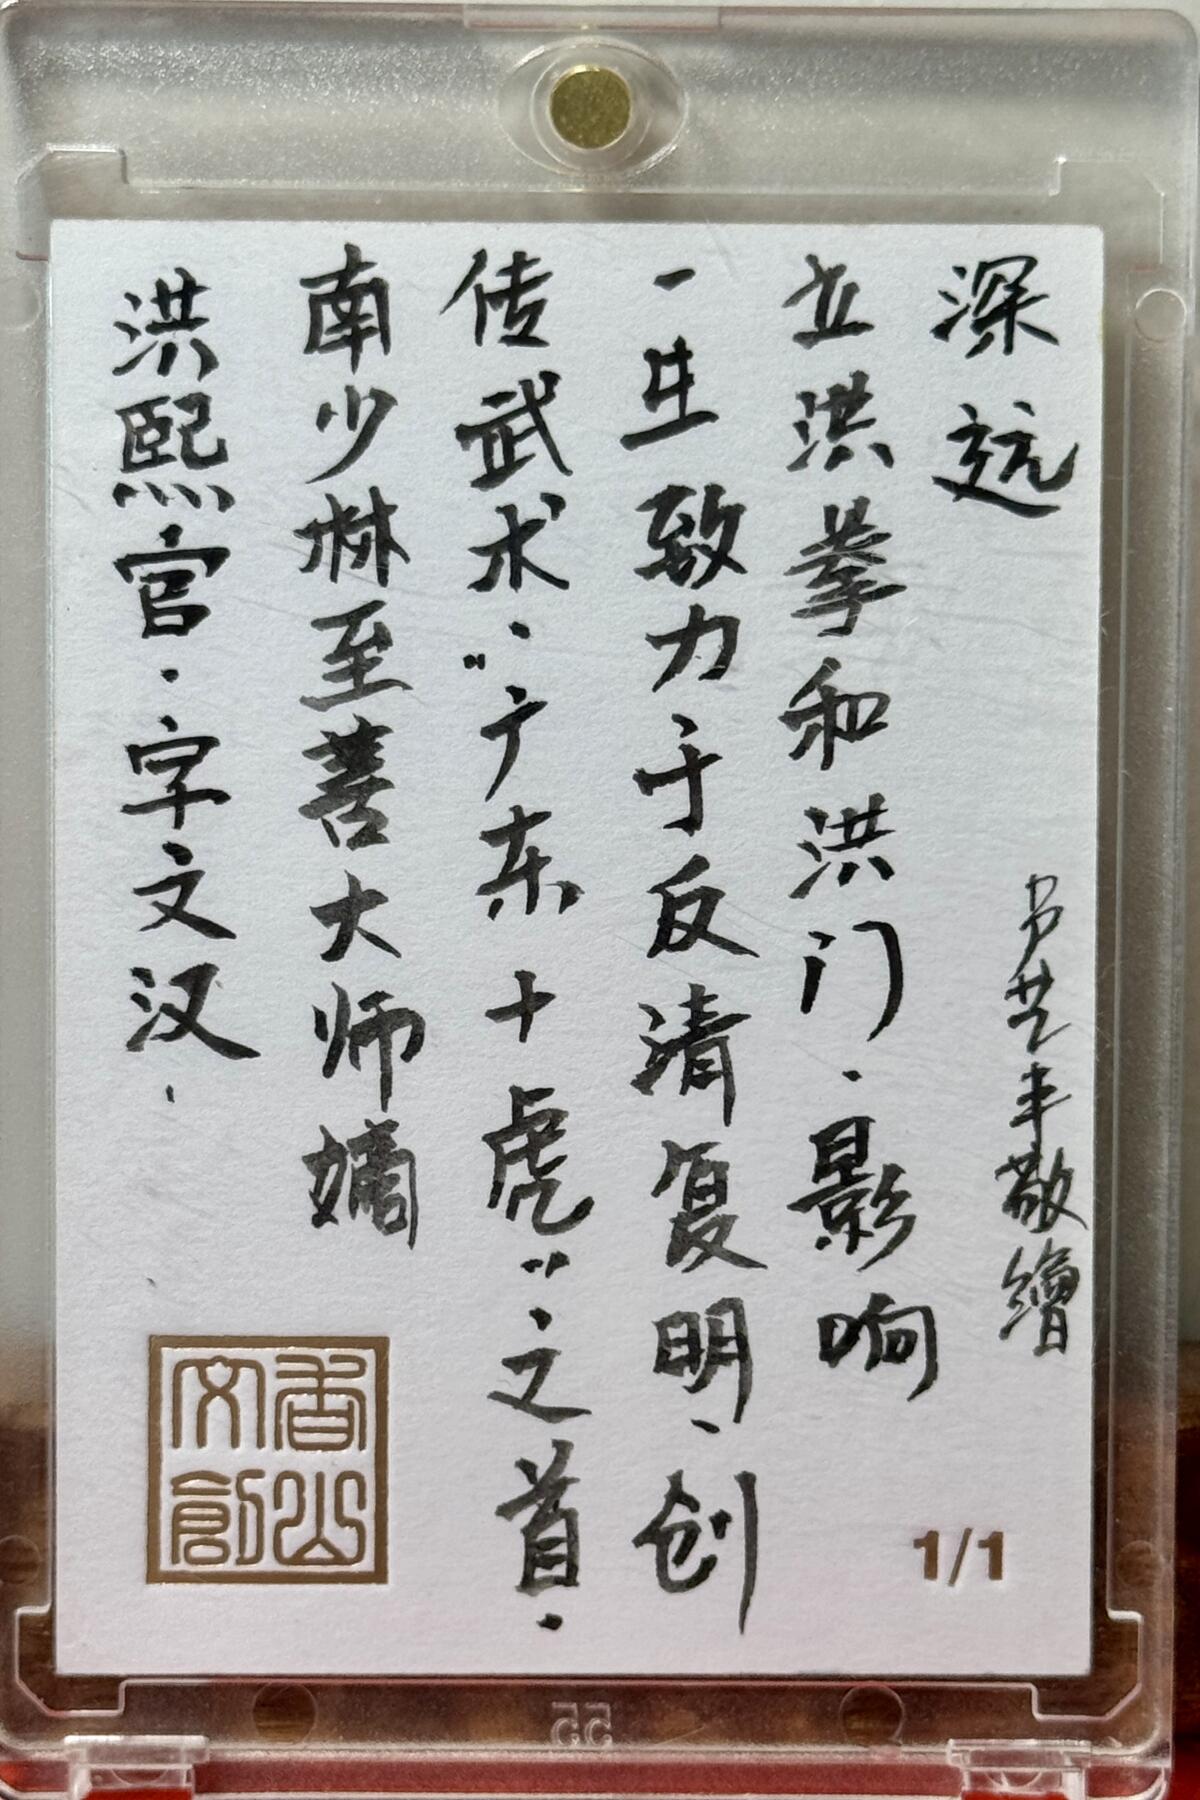 洪熙官，字文汉，
南少林至善大师嫡
传武术，“广东十虎”之首，
一生致力于反清复明，创
立洪拳和洪门，影响
深远
卢艺丰敬繪
香山文創
1/1
55